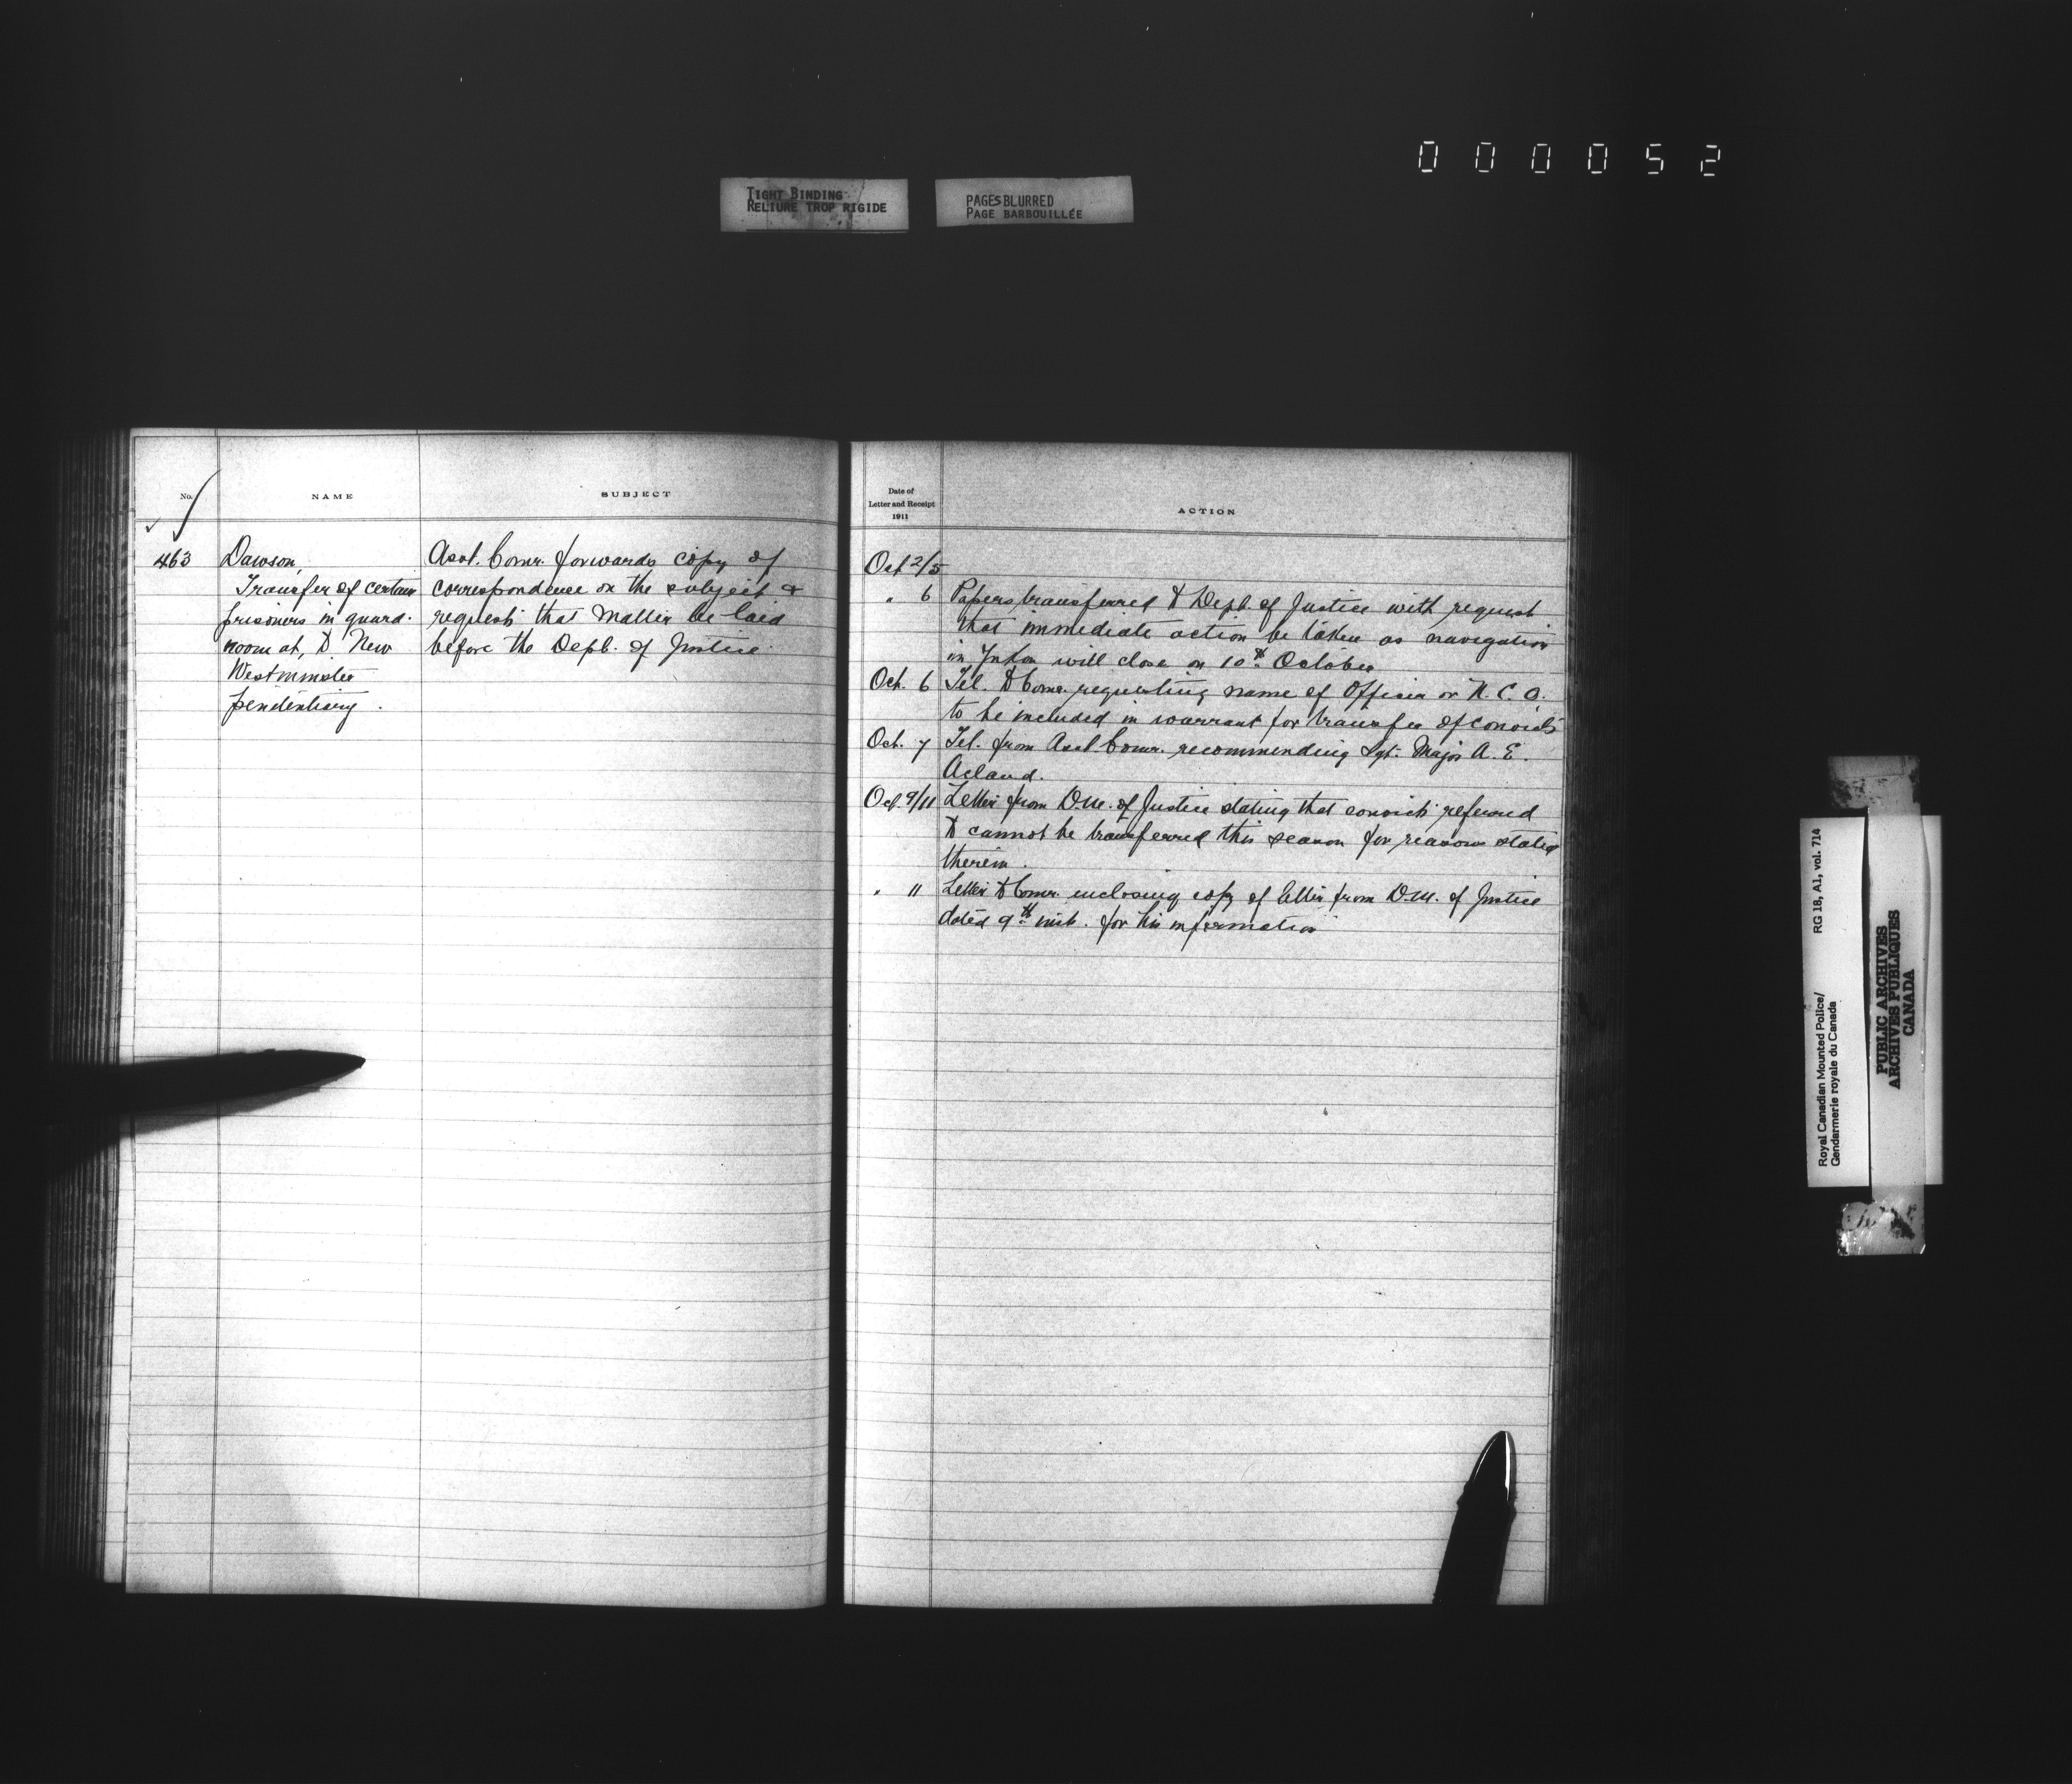 000052
TIGHT BINDING
RELIURE TROP RIGIDE
PAGES BLURRED
PAGE BARBOUILLÉE
No.
NAME
SUBJECT
463
Dawson,
Transfer of certain
prisoners in guard-
room at, to New
Westminster
penitentiary.
Asst. Comr. forwards copy of
correspondence on the subject &
requests that matter be laid
before the Dept. of Justice
Date of
Letter and Receipt
1911
ACTION
Oct 2/5
" 6 Papers transferred to Dept. of Justice with request
that immediate action be taken as navigation
in Yukon will close on 10th October
Oct. 6 Tel. to Comr. requesting name of Officer or N.C.O.
to be included in warrant for transfer of convicts
Oct. 7 Tel. from Asst. Comr. recommending Sgt. Major A. E.
Acland.
Oct. 9/11 Letter from D.M. of Justice stating that convicts referred
to cannot be transferred this season for reasons stated
therein.
" 11 Letter to Comr. enclosing copy of letter from D.M. of Justice
dated 9th inst. for his information
RG 18, A1, vol. 714
Royal Canadian Mounted Police/
Gendarmerie royale du Canada
PUBLIC ARCHIVES
ARCHIVES PUBLIQUES
CANADA